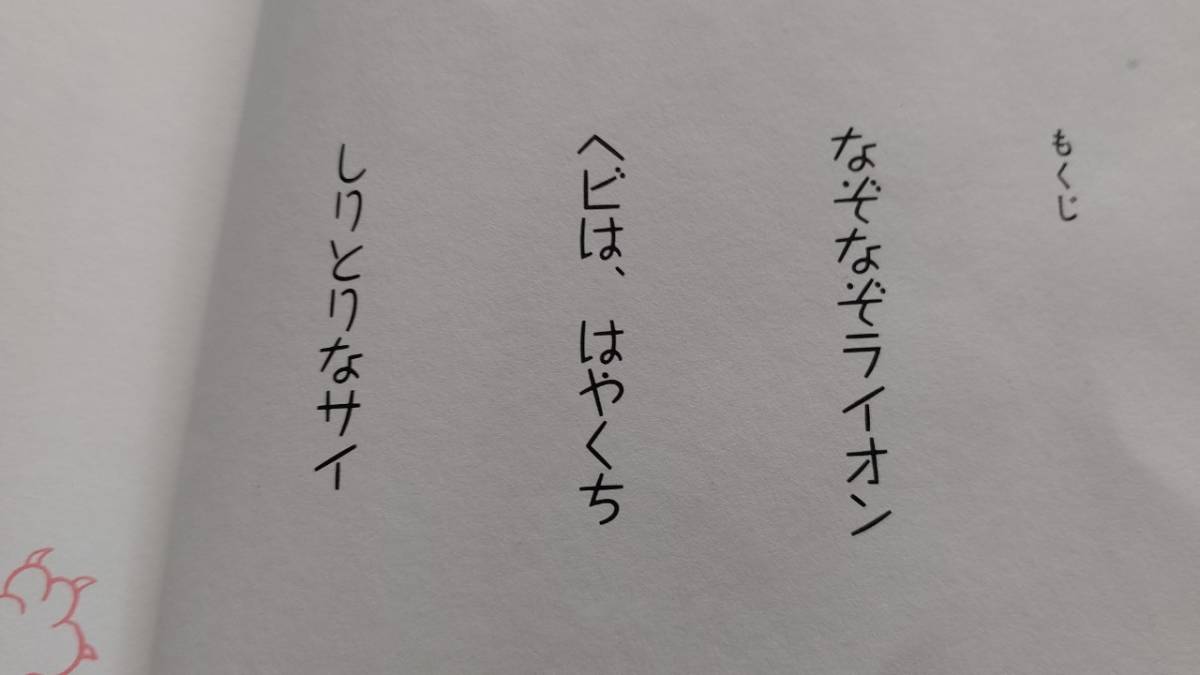 もくじ
なぞなぞライオン
ヘビは、はやくち
しりとりなサイ